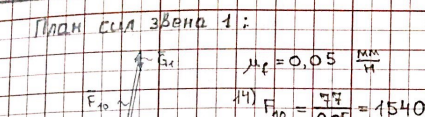 План сил звена 1:
μf = 0,05 мм/Н
F10
14) F10 = 77/0,05 = 1540